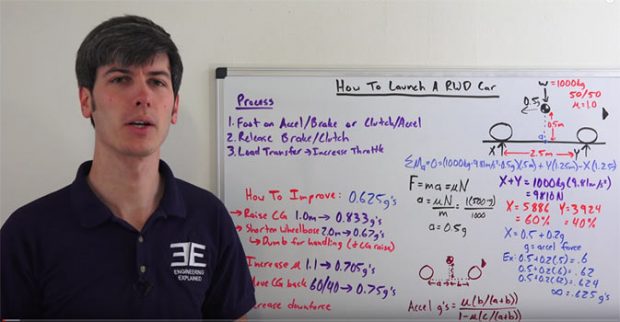 How To Launch A RWD Car
Process
1. Foot on Accel/Brake or Clutch/Accel
2. Release Brake/Clutch
3. Load Transfer → Increase Throttle
How To Improve: 0.625g's
→ Raise CG 1.0m → 0.833g's
→ Shorten Wheelbase 2.0m → 0.67g's
↳ Dumb for handling (& CG raise)
Increase μ 1.1 → 0.705g's
ove CG back 60/40 → 0.75g's
crease downforce
F=ma=μN
a = μN/m = 1(500·g)/1000
a = 0.5g
Accel g's = μ(b/(a+b))/1-μ(c/(a+b))
a b
W=1000kg
50/50
μ=1.0
0.5g
0.5m
a
X 2.5m Y
ΣMa=0=(1000kg·9.81m/s²·0.5g)(.5m)+Y(1.25m)-X(1.25)
X+Y=1000kg(9.81m/s²)
=9810N
X=5886 Y=3924
=60% =40%
X=0.5+0.2g
g=accel force
Ex: 0.5+0.2(.5)=.6
0.5+0.2(.6)=.62
0.5+0.2(.62)=.624
∞=.625g's
ENGINEERING
EXPLAINED